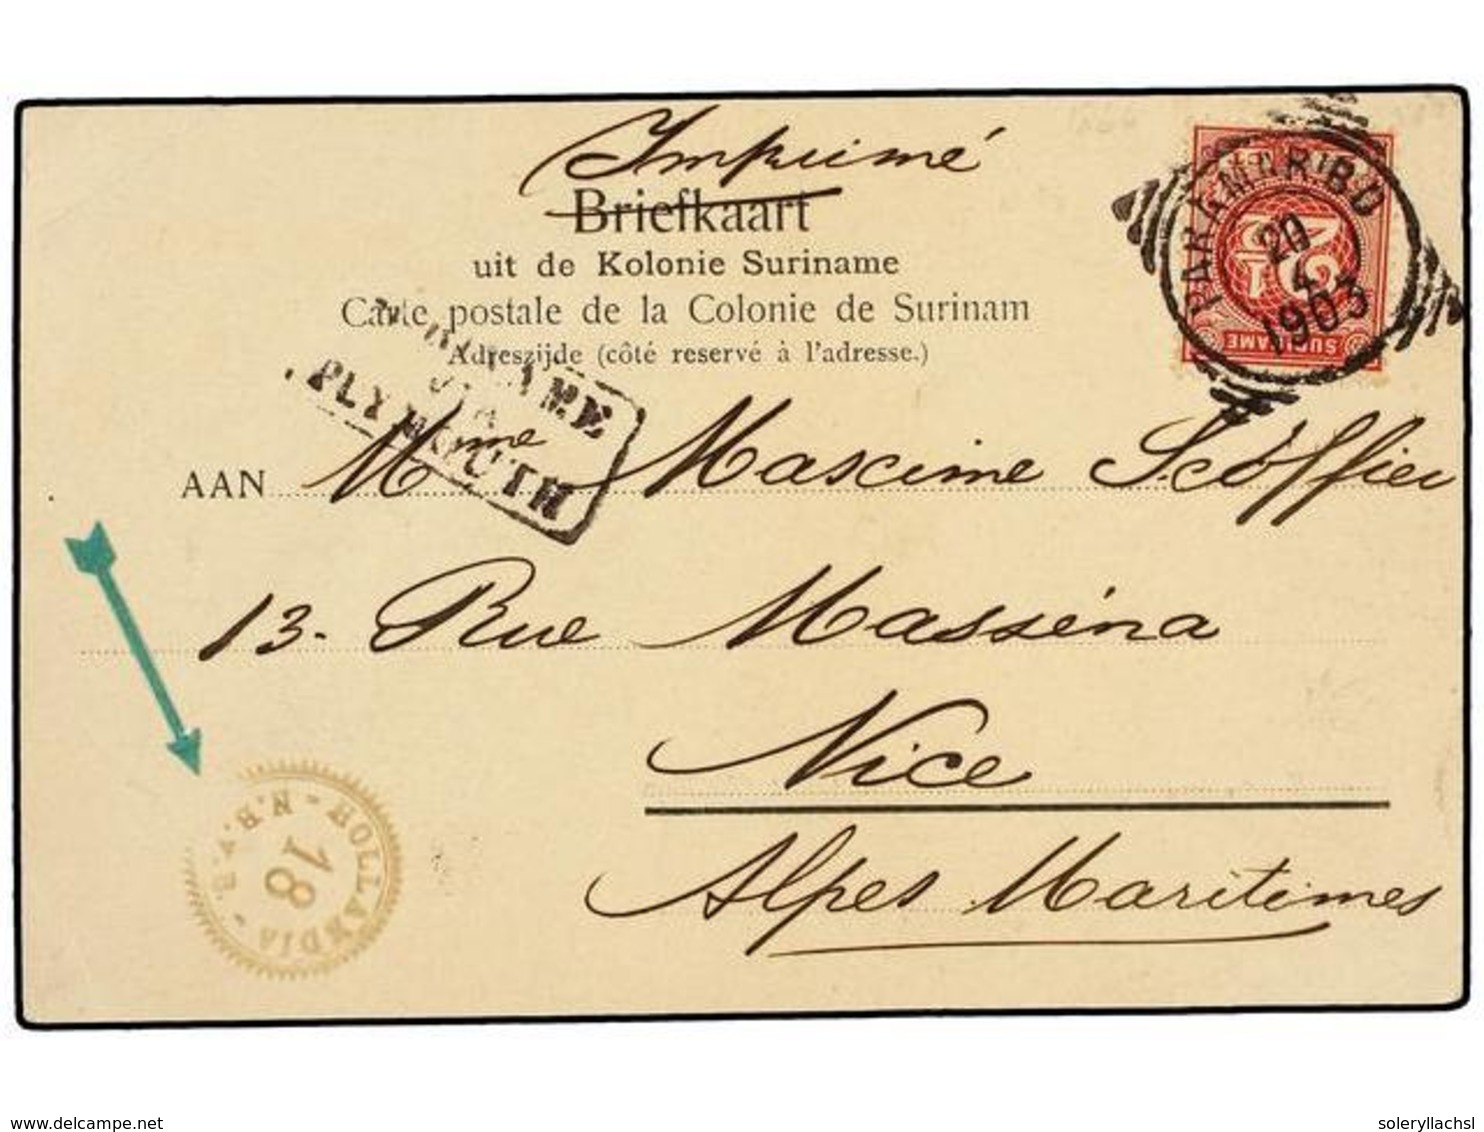 Imprimé
Briefkaart
uit de Kolonie Suriname
Carte postale de la Colonie de Surinam
Adreszijde (côté reservé à l'adresse.)
PARAMARIBO
20
4
1903
2½
SURINAME
VIA
PLYMOUTH
AAN Mme Maxime Scoffier
13. Rue Masséna
Nice
Alpes Maritimes
HOLLANDIA
18
www.delcampe.net
soleryllachsl